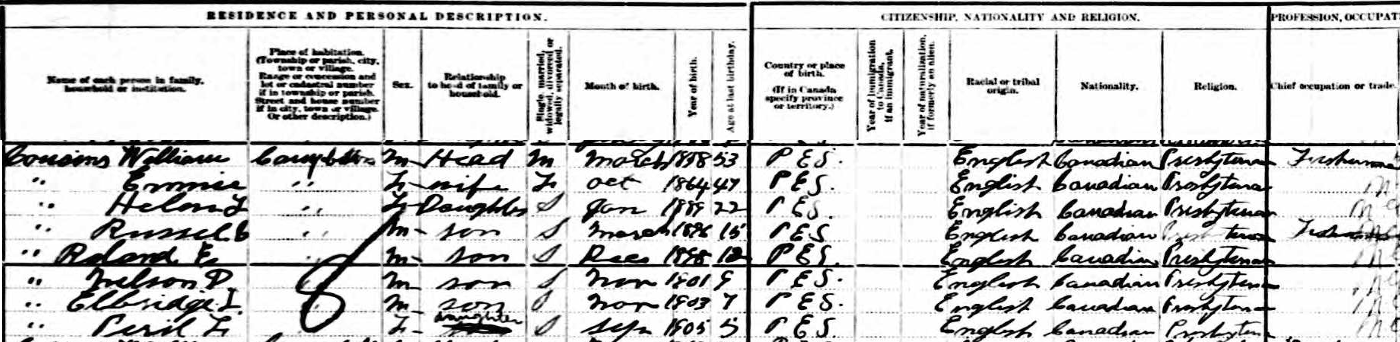 RESIDENCE AND PERSONAL DESCRIPTION.
CITIZENSHIP, NATIONALITY AND RELIGION.
PROFESSION, OCCUPAT
Name of each person in family, household or institution.
Place of habitation. (Township or parish, city, town or village. Range or concession and lot or cadastral number if in township or parish. Street and house number if in city, town or village. Or other description.)
Sex.
Relationship to head of family or household.
Single, married, widowed, divorced or legally separated.
Month of birth.
Year of birth.
Age at last birthday.
Country or place of birth. (If in Canada specify province or territory.)
Year of immigration to Canada, if an immigrant.
Year of naturalization, if formerly an alien.
Racial or tribal origin.
Nationality.
Religion.
Chief occupation or trade.
Cousins William Campbellton M Head M March 1858 53 P E S. English Canadian Presbyterian Fisherman
" Emmie " F wife 1864 47 P E S. English Canadian Presbyterian
" Helen F " F Daughter S Jan 1889 22 P E S. English Canadian Presbyterian
" Russel C " M son S March 1896 15 P E S. English Canadian Fisherman
" Roland E " M son S Dec 1898 12 P E S. English Canadian Presbyterian
" Nelson P " M son S Nov 1901 9 P E S. English Canadian Presbyterian
" Elbridge I M son S Nov 1903 7 P E S. English Canadian Presbyterian
" F daughter S Sep 1905 5 P E S. English Canadian Presbyterian